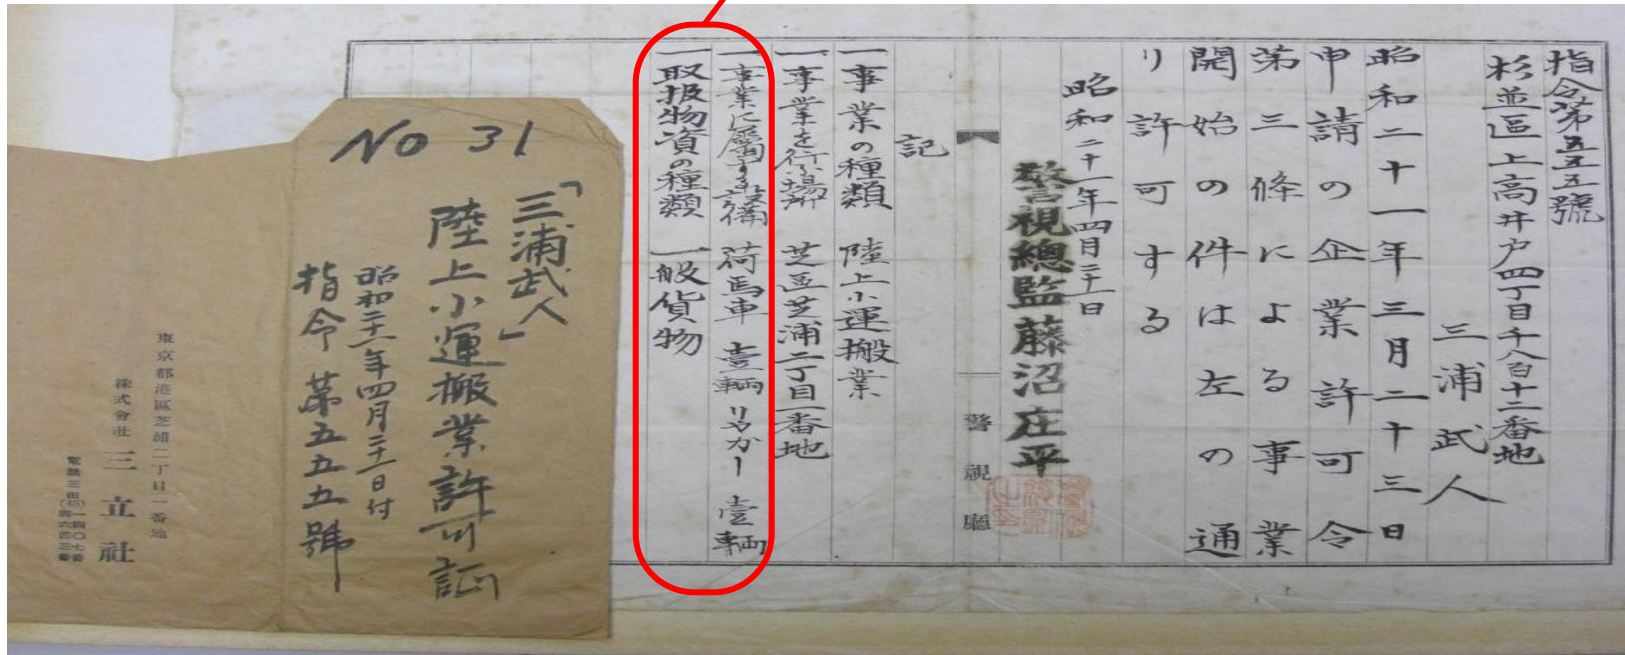 指令第五五五號
杉並區上高井戸四丁目千八百十二番地
三浦武人
昭和二十一年三月二十三日
申請の企業許可令
第三條による事業
開始の件は左の通
り許可する
昭和二十一年四月二十二日
警視總監藤沼庄平
警視廳
記
一事業の種類 陸上小運搬業
一事業を行ふ場所 芝區芝浦二丁目一番地
一事業に屬する設備 荷馬車 壹輛 リヤカー 壹輛
一取扱物資の種類 一般貨物
NO 31
「三浦武人」
陸上小運搬業許可証
昭和二十一年四月二十二日付
指令第五五五號
東京都港區芝浦二丁目一番地
株式會社 三立社
電話三田(45)